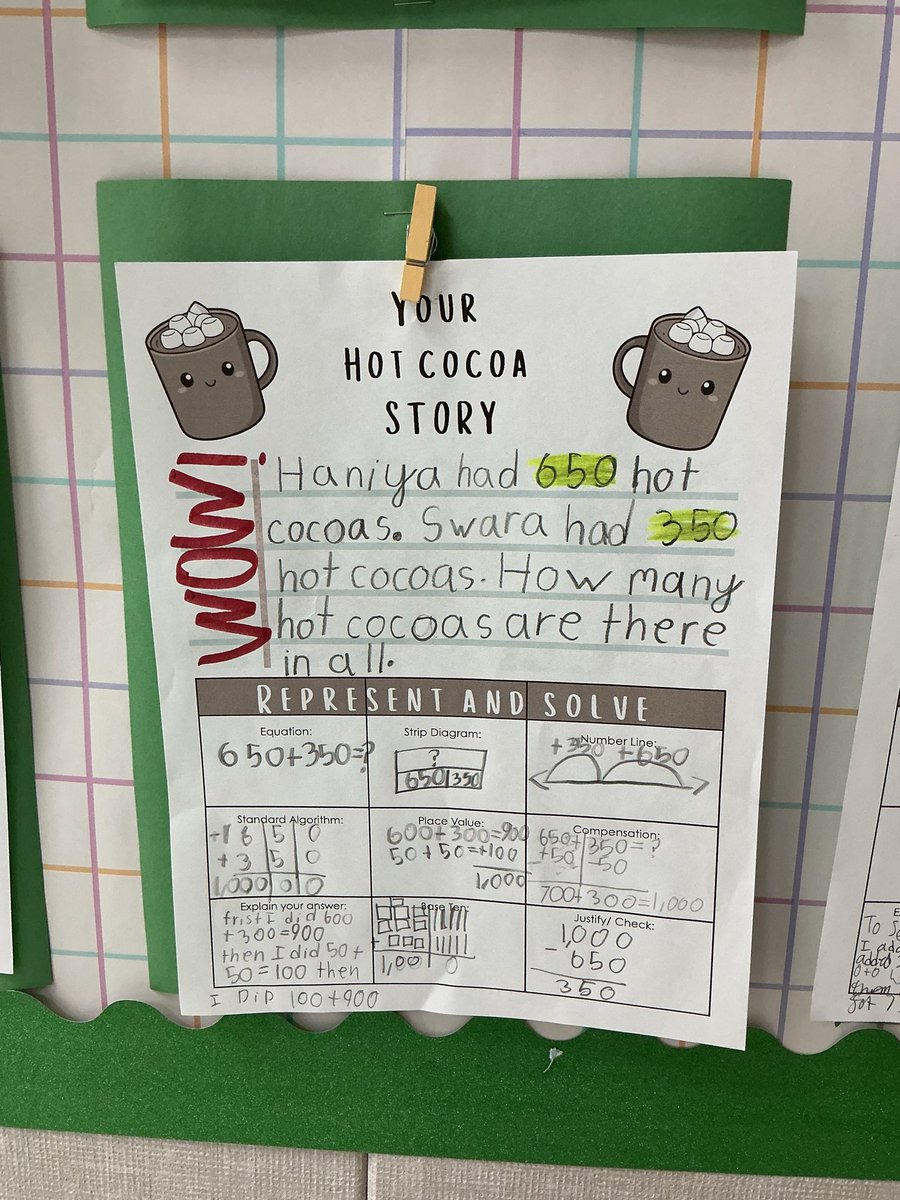 YOUR
HOT COCOA
STORY
WOW!
Haniya had 650 hot
cocoas. Swara had 350
hot cocoas. How many
hot cocoas are there
in all.
REPRESENT AND SOLVE
Equation:
650+350=?
Strip Diagram:
?
650 350
Number Line:
+350 +650
Standard Algorithm:
+1 6 5 0
+ 3 5 0
1,000 0 0
Place Value:
600+300=900
50+50=+100
1,000
Compensation:
650+ 350=?
+50 -50
700+300=1,000
Explain your answer:
frist I did 600
+300=900
then I did 50+
50=100 then
I DiD 100+900
Base Ten:
+
1,00 0
Justify/ Check:
1,000
- 650
350
To
I add
added
0+0
them
for 7